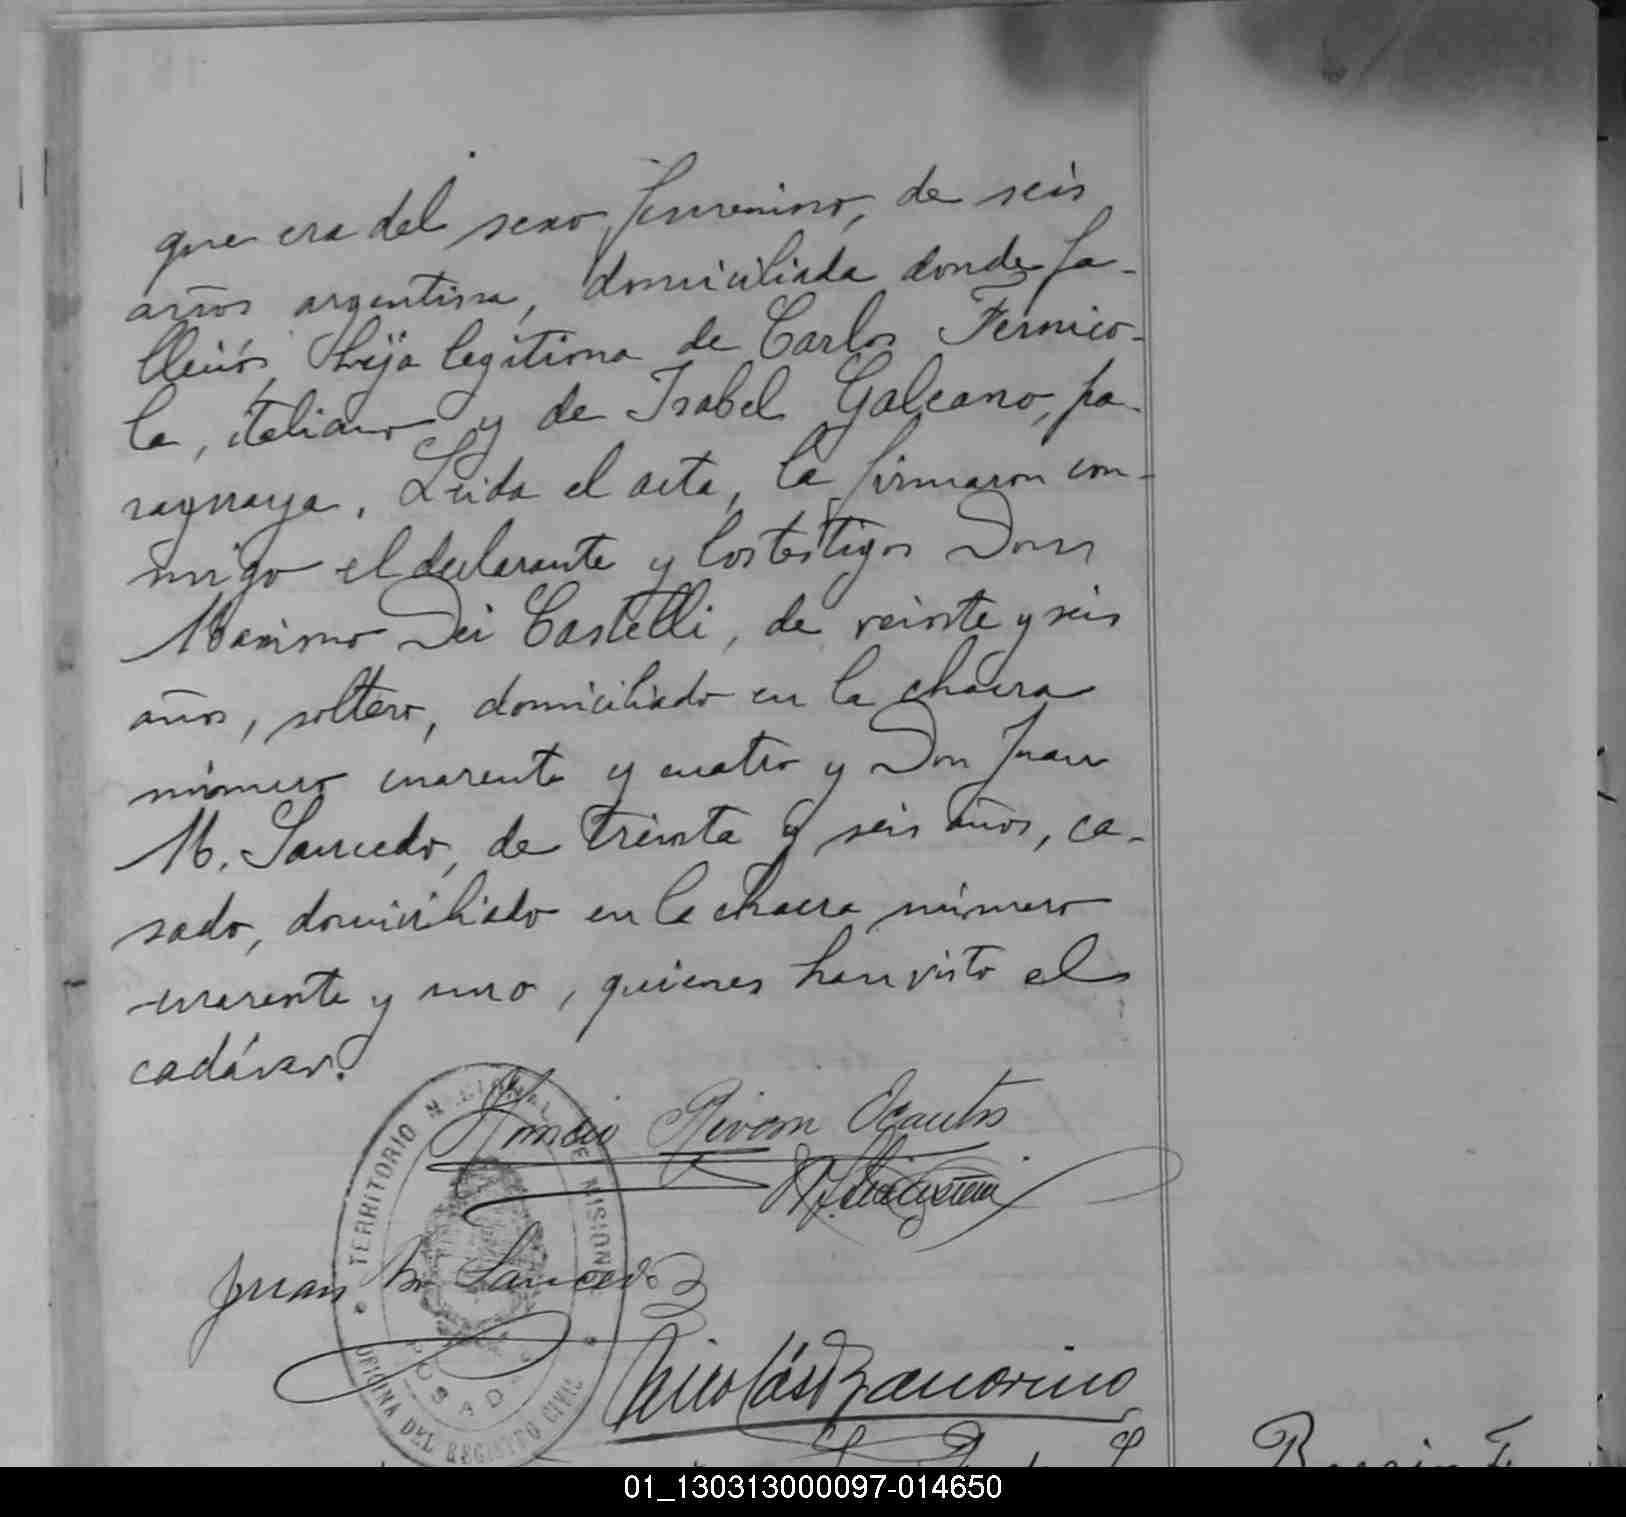 que era del sexo femenino, de seis
años argentina, domiciliada donde fa-
lleció, hija legitima de Carlos Fernico-
la, italiano y de Isabel Galeano, pa-
raguaya. Leida el acta, la firmaron con-
migo el declarante y los testigos Don
Maximo Dei Castelli, de veinte y seis
años, soltero, domiciliado en la chacra
número cuarenta y cuatro y Don Juan
M. Saucedo, de treinta y seis años, ca-
sado, domiciliado en la chacra número
cuarenta y uno, quienes han visto el
cadáver.
TERRITORIO NACIONAL DE MISIONES
Rivera Ocantos
Juan M Saucedo
POSADAS
OFICINA DEL REGISTRO CIVIL
Nicolás Zamorino
01_130313000097-014650